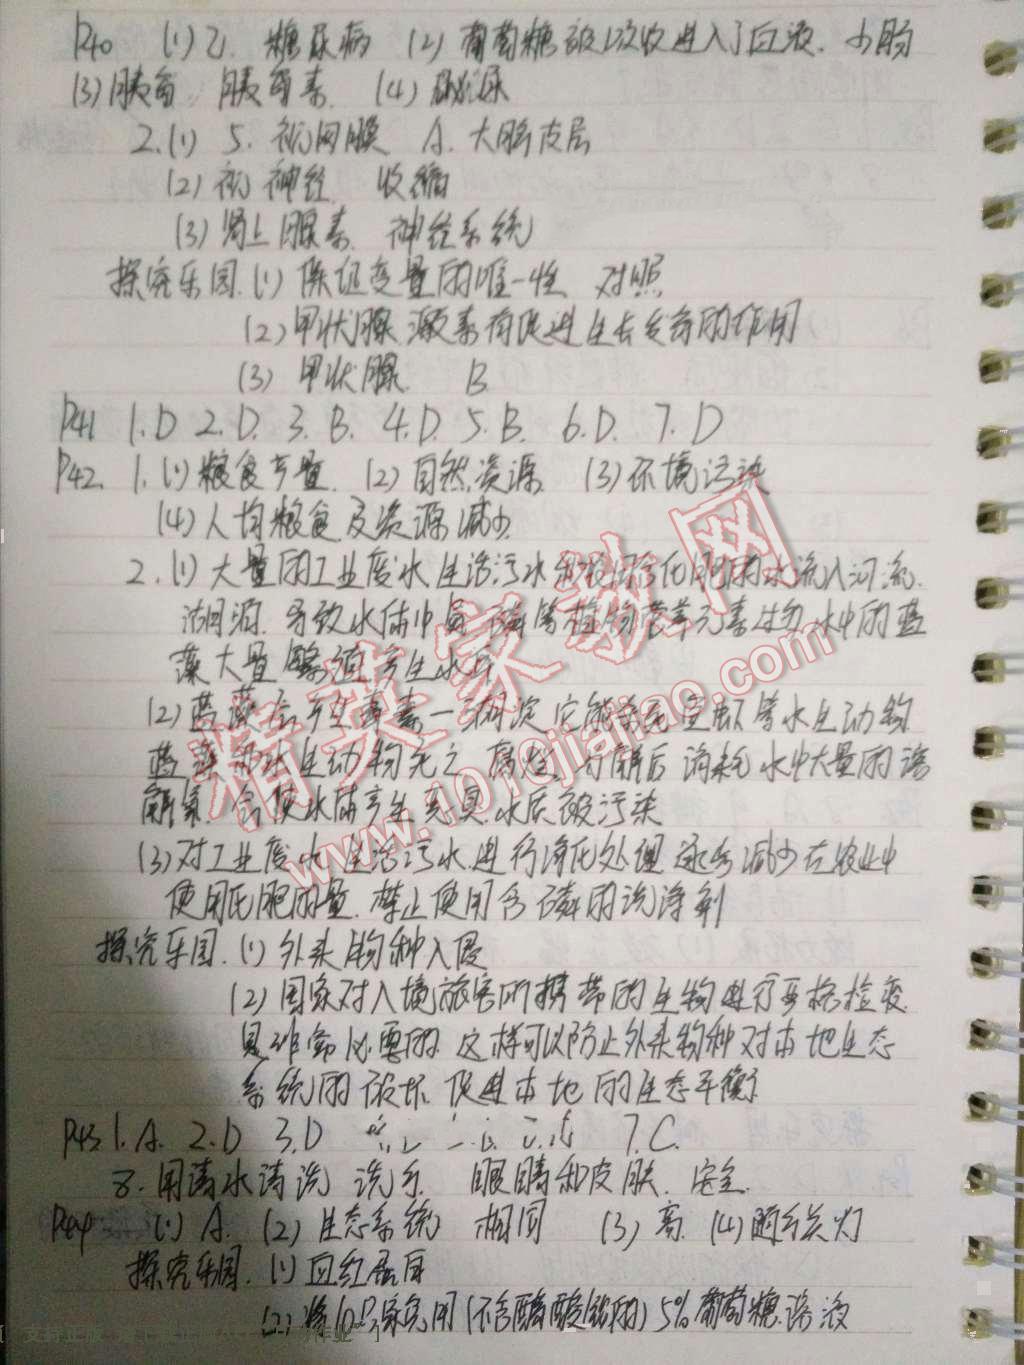 P40 (1)乙. 糖尿病 (2)葡萄糖被吸收进入了血液. 小肠
(3)胰岛. 胰岛素. (4)糖尿
2.(1) 5. 视网膜 A. 大脑皮层
(2)视神经 收缩
(3)肾上腺素. 神经系统
探究乐园.(1)保证变量的唯一性 对照
(2)甲状腺激素有促进生长发育的作用
(3) 甲状腺. B
P41 1.D 2.D. 3.B. 4.D. 5.B. 6.D. 7.D
P42. 1.(1)粮食产量. (2)自然资源 (3)环境污染
(4)人均粮食及资源减少
2.(1)大量的工业废水 生活污水 化肥的水流入河流.
湖泊. 导致水体中氮 磷等植物营养元素过多 水中的蓝
藻大量 产生水华
(2)蓝藻会产生毒素 它能 鱼虾等水生动物
蓝藻和水生动物死亡 腐烂 分解后 消耗水中大量的溶
解氧. 会使水体产生恶臭. 水质被污染
(3)对工业废水 生活污水进行净化处理 逐步减少在农业中
使用化肥的量. 禁止使用含磷的洗涤剂
探究乐园.(1)外来物种入侵
(2)国家对入境旅客所携带的生物进行严格检疫
是非常必要的 这样可以防止外来物种对本地生态
系统的破坏 促进本地的生态平衡
P43 1.A. 2.D 3.D 7.C.
8.用清水清洗 洗手 眼睛和皮肤. 安全.
(1) A. (2)生态系统 相同 (3)高. (4)随手关灯
探究乐园.(1)血红蛋白
5%葡萄糖溶液
精英家教网
www.1010jiajiao.com